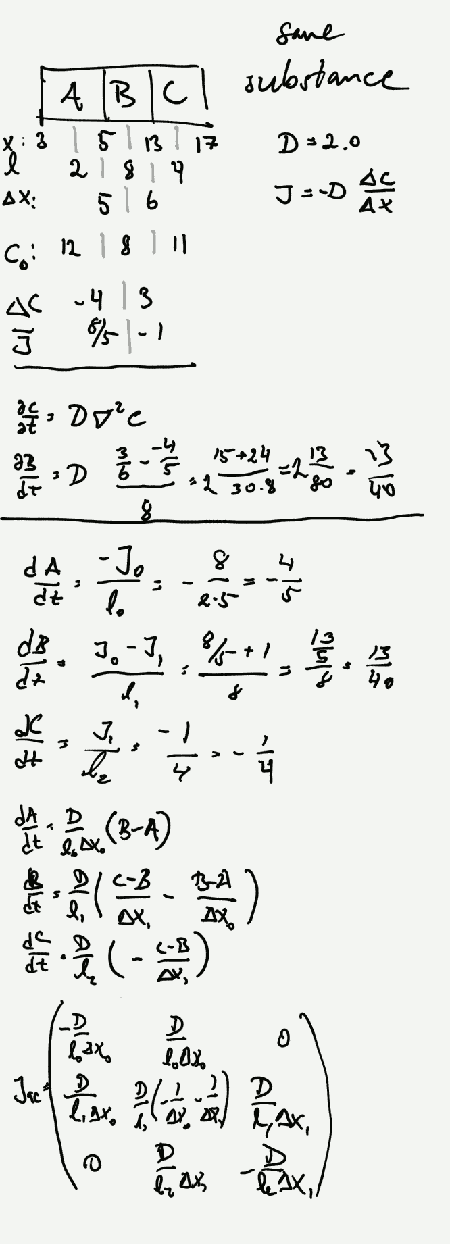 same
substance
A B C
x: 3 | 5 | 13 | 17
l 2 | 8 | 4
Δx: 5 | 6
C₀: 12 | 8 | 11
ΔC -4 | 3
J 8/5 | -1
D = 2.0
J = -D ΔC/Δx
∂c/∂t = D∇²c
∂B/dt = D (3/6 - -4/5)/8 = 2 (15+24)/(30·8) = 2 13/80 = 13/40
dA/dt = -J₀/l₀ = - 8/(2·5) = -4/5
dB/dt = (J₀-J₁)/l₁ = (8/5+1)/8 = (13/5)/8 = 13/40
dC/dt = J₁/l₂ = -1/4 = -1/4
dA/dt = D/(l₀Δx₀) (B-A)
dB/dt = D/l₁ ((C-B)/Δx₁ - (B-A)/Δx₀)
dC/dt = D/l₂ (-(C-B)/Δx₁)
-D/(l₀Δx₀) D/(l₀Δx₀) 0
Jac = D/(l₁Δx₀) D/l₁(-1/Δx₀ - 1/Δx₁) D/(l₁Δx₁)
0 D/(l₂Δx₁) -D/(l₂Δx₁)